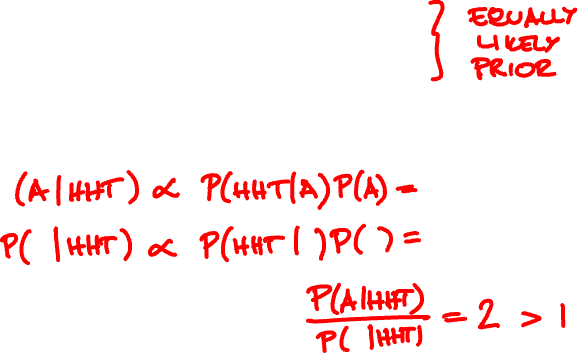 } EQUALLY
LIKELY
PRIOR
(A|HHT) ∝ P(HHT|A)P(A) =
P( |HHT) ∝ P(HHT| )P( ) =
P(A|HHT)
P( |HHT) = 2 > 1